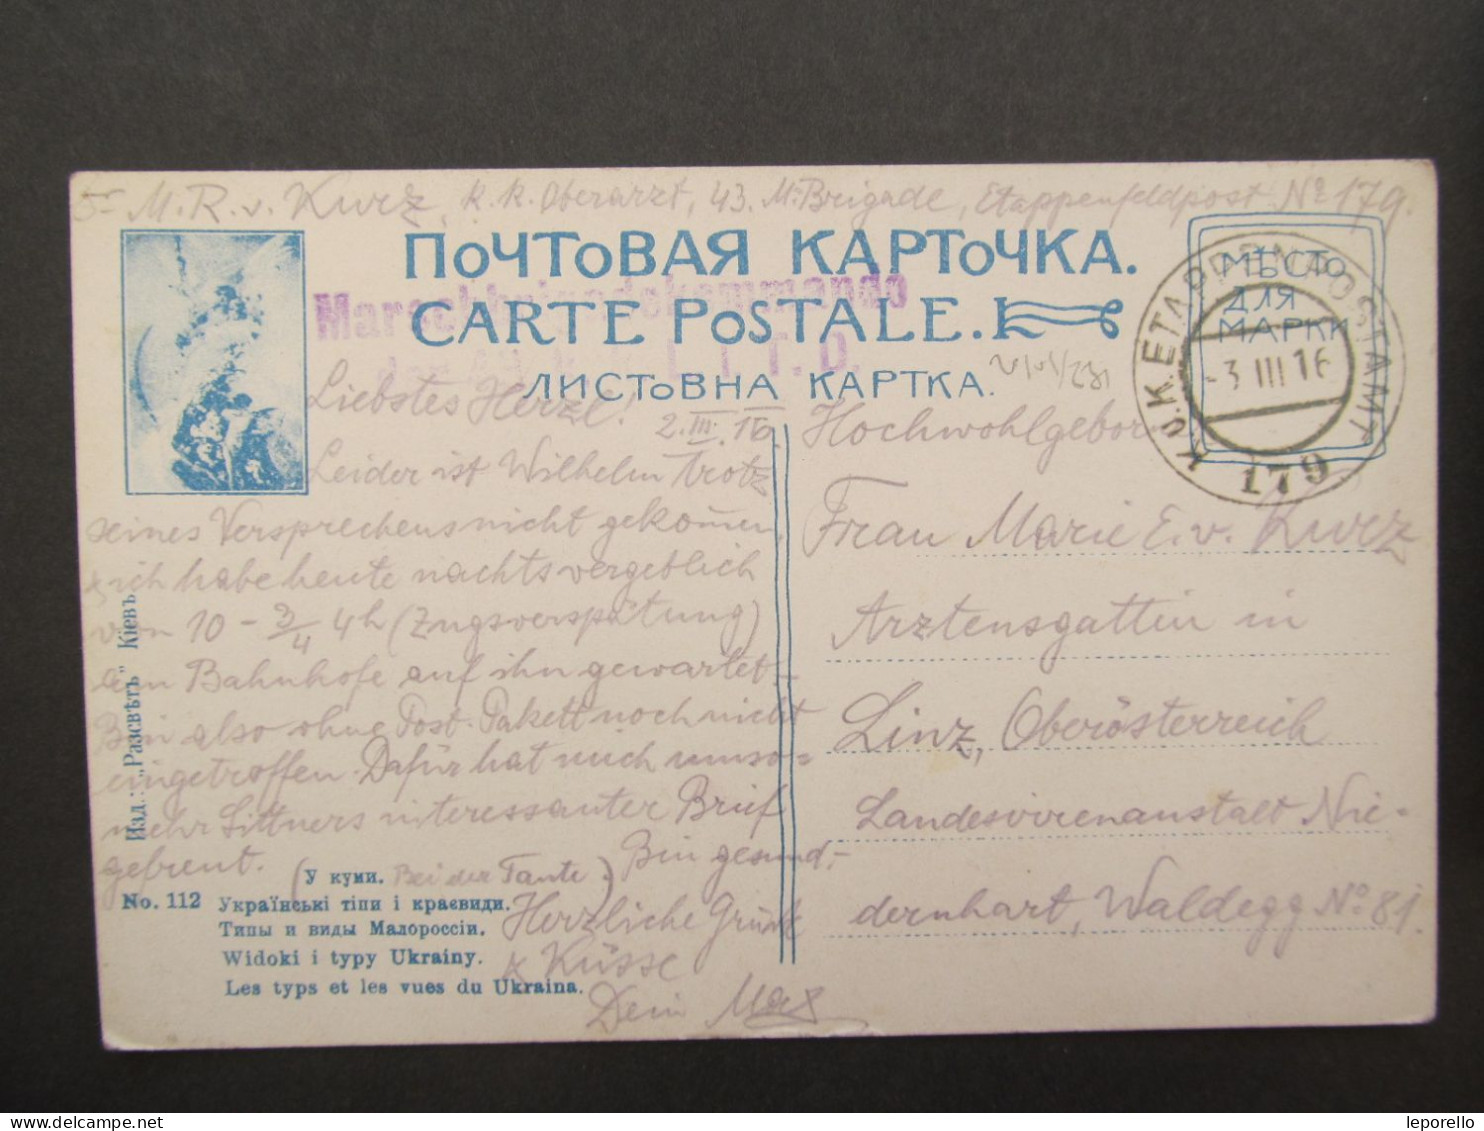 M. R. v. Kurz, K. K. Oberarzt, 43. M. Brigade, Etappenfeldpost No 179.
ПОЧТОВАЯ КАРТОЧКА.
CARTE POSTALE.
ЛИСТОВНА КАРТКА.
Marschbrigadekommando
МѢСТО
ДЛЯ
МАРКИ
K.u.K. ETAPPENPOSTAMT
-3 III 16
179
Liebstes Herzl!
2.III.16.
Leider ist Wilhelm trotz
seines Versprechens nicht gekom̄en,
ich habe heute nachts vergeblich
von 10 - 3/4 4h (Zugsverspätung)
am Bahnhofe auf ihn gewartet.
Bin also ohne Post. Pakett noch nicht
eingetroffen. Dafür hat mich umso=
mehr Sittners interessanter Brief
gefreut.
Bin gesund.-
Herzliche Grüße
& Küsse
Dein Max
Hochwohlgebor
Frau Marie E. v. Kurz
Arztensgattin in
Linz, Oberösterreich
Landesirrenanstalt Nie-
dernhart, Waldegg No 81.
Изд.: „Разсвѣтъ" Кіевъ.
(У куми. Bei der Tante.)
No. 112 Українські тіпи і краєвиди.
Типы и виды Малороссіи.
Widoki i typy Ukrainy.
Les typs et les vues du Ukraina.
leporello